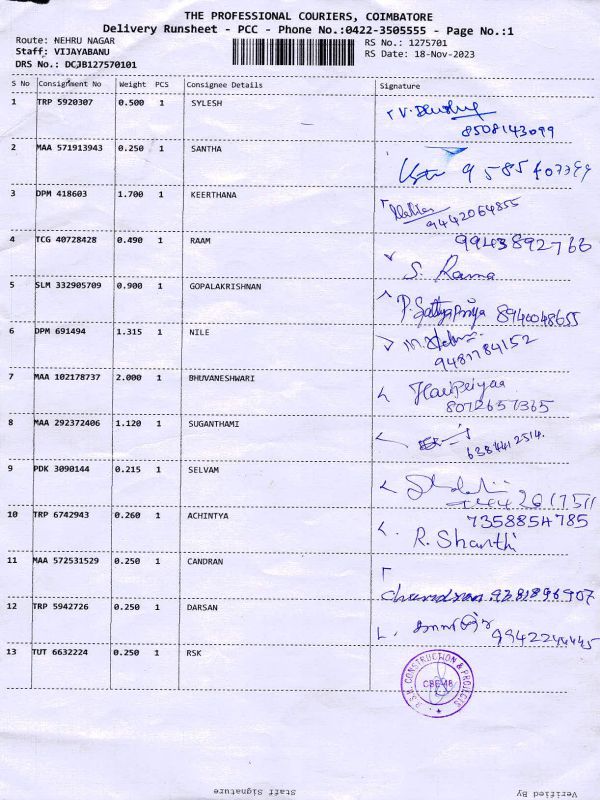 THE PROFESSIONAL COURIERS, COIMBATORE
Delivery Runsheet - PCC - Phone No.:0422-3505555 - Page No.:1
Route: NEHRU NAGAR
RS No.: 1275701
Staff: VIJAYABANU
RS Date: 18-Nov-2023
DRS No.: DCJB127570101
S No Consignment No Weight PCS Consignee Details Signature
1 TRP 5920307 0.500 1 SYLESH
8508143099
2 MAA 571913943 0.250 1 SANTHA
3 DPM 418603 1.700 1 KEERTHANA
9442064855
4 TCG 40728428 0.490 1 RAAM 9943892766
S. Rama
5 SLM 332905709 0.900 1 GOPALAKRISHNAN
P. Sathyapriya 8940048655
6 DPM 691494 1.315 1 NILE
9487784152
7 MAA 102178737 2.000 1 BHUVANESHWARI Haripriyaa
8072657365
8 MAA 292372406 1.120 1 SUGANTHAMI
6384412514.
9 PDK 3090144 0.215 1 SELVAM
10 TRP 6742943 0.260 1 ACHINTYA 7358854785
R. Shanthi
11 MAA 572531529 0.250 1 CANDRAN
chandran 9381896907
12 TRP 5942726 0.250 1 DARSAN
9942244445
13 TUT 6632224 0.250 1 RSK
R.S.K. CONSTRUCTION & PROJECTS
Staff Signature
Verified By